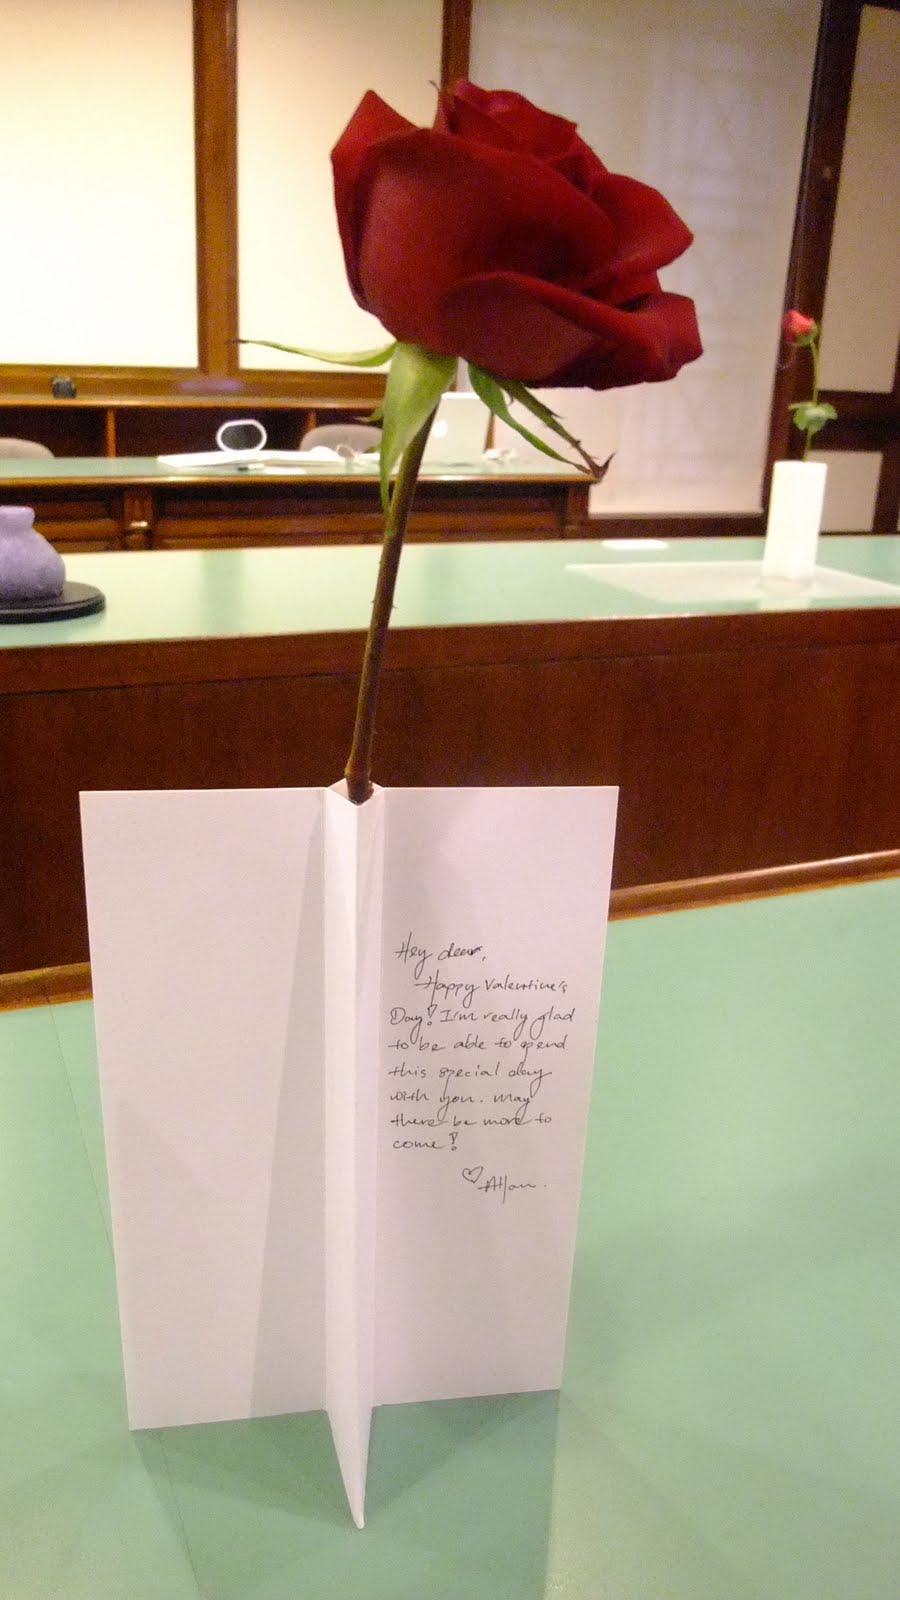 Hey dear,
Happy Valentine's
Day! I'm really glad
to be able to spend
this special day
with you. May
there be more to
come!